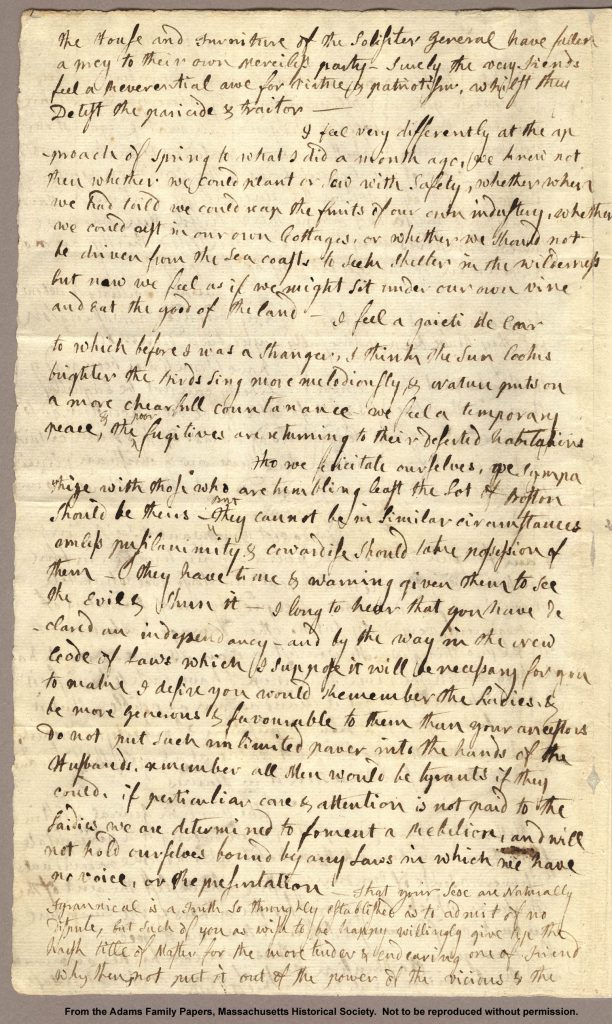 The House and Furniture of the Solisiter General have fallen
a prey to their own merciless party — Surely the very Fiends
feel a Reverential awe for Virtue & patriotism, whilst they
Detest the paricide & traitor —
I feel very differently at the ap
-proach of spring to what I did a month ago, we knew not
then whether we could plant or sow with safety, whether when
we had toild we could reap the fruits of our own industery, whether
we could rest in our own Cottages, or whether we should not
be driven from the sea coasts to seek shelter in the wilderness
but now we feel as if we might sit under our own vine
and eat the good of the land — I feel a gaieti de Coar
to which before I was a stranger, I think the Sun looks
brighter the Birds sing more melodiously, & nature puts on
a more chearfull countanance we feel a temporary
peace, & the poor fugitives are returning to their deserted habitations
Tho we felicitate ourselves, we sympa
thize with those who are trembling least the Lot of Boston
should be theirs — but they cannot be in similar circumstances
unless pusilanimity & cowardise should take possession of
them — they have time & warning given them to see
the Evil & shun it — I long to hear that you have de
-clared an independancy — and by the way in the new
Code of Laws which I suppose it will be necessary for you
to make I desire you would Remember the Ladies, &
be more generous & favourable to them than your ancestors
do not put such unlimited power into the hands of the
Husbands. remember all Men would be tyrants if they
could. if perticuliar care & attention is not paid to the
Laidies we are determined to foment a Rebelion, and will
not hold ourselves bound by any Laws in which we have
no voice, or Representation — That your Sex are Naturally
Tyrannical is a Truth so throughly established as to admit of no
dispute, but such of you as wish to be happy willingly give up the
harsh title of Master for the more tender & endearing one of Friend
Why then, not put it out of the power of the vicious & the
From the Adams Family Papers, Massachusetts Historical Society. Not to be reproduced without permission.